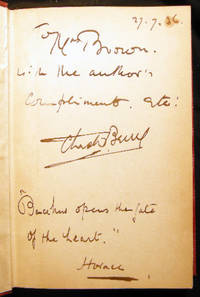 27.7.36
To Mrs Brown.
with the author's
Compliments. etc:
"Bacchus opens the gate
of the heart."
Horace